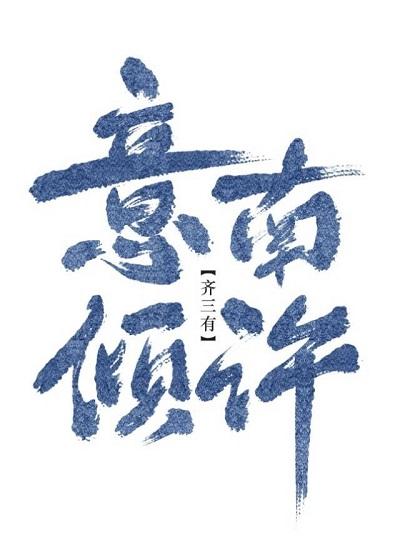 意倾
南许
【齐三有】